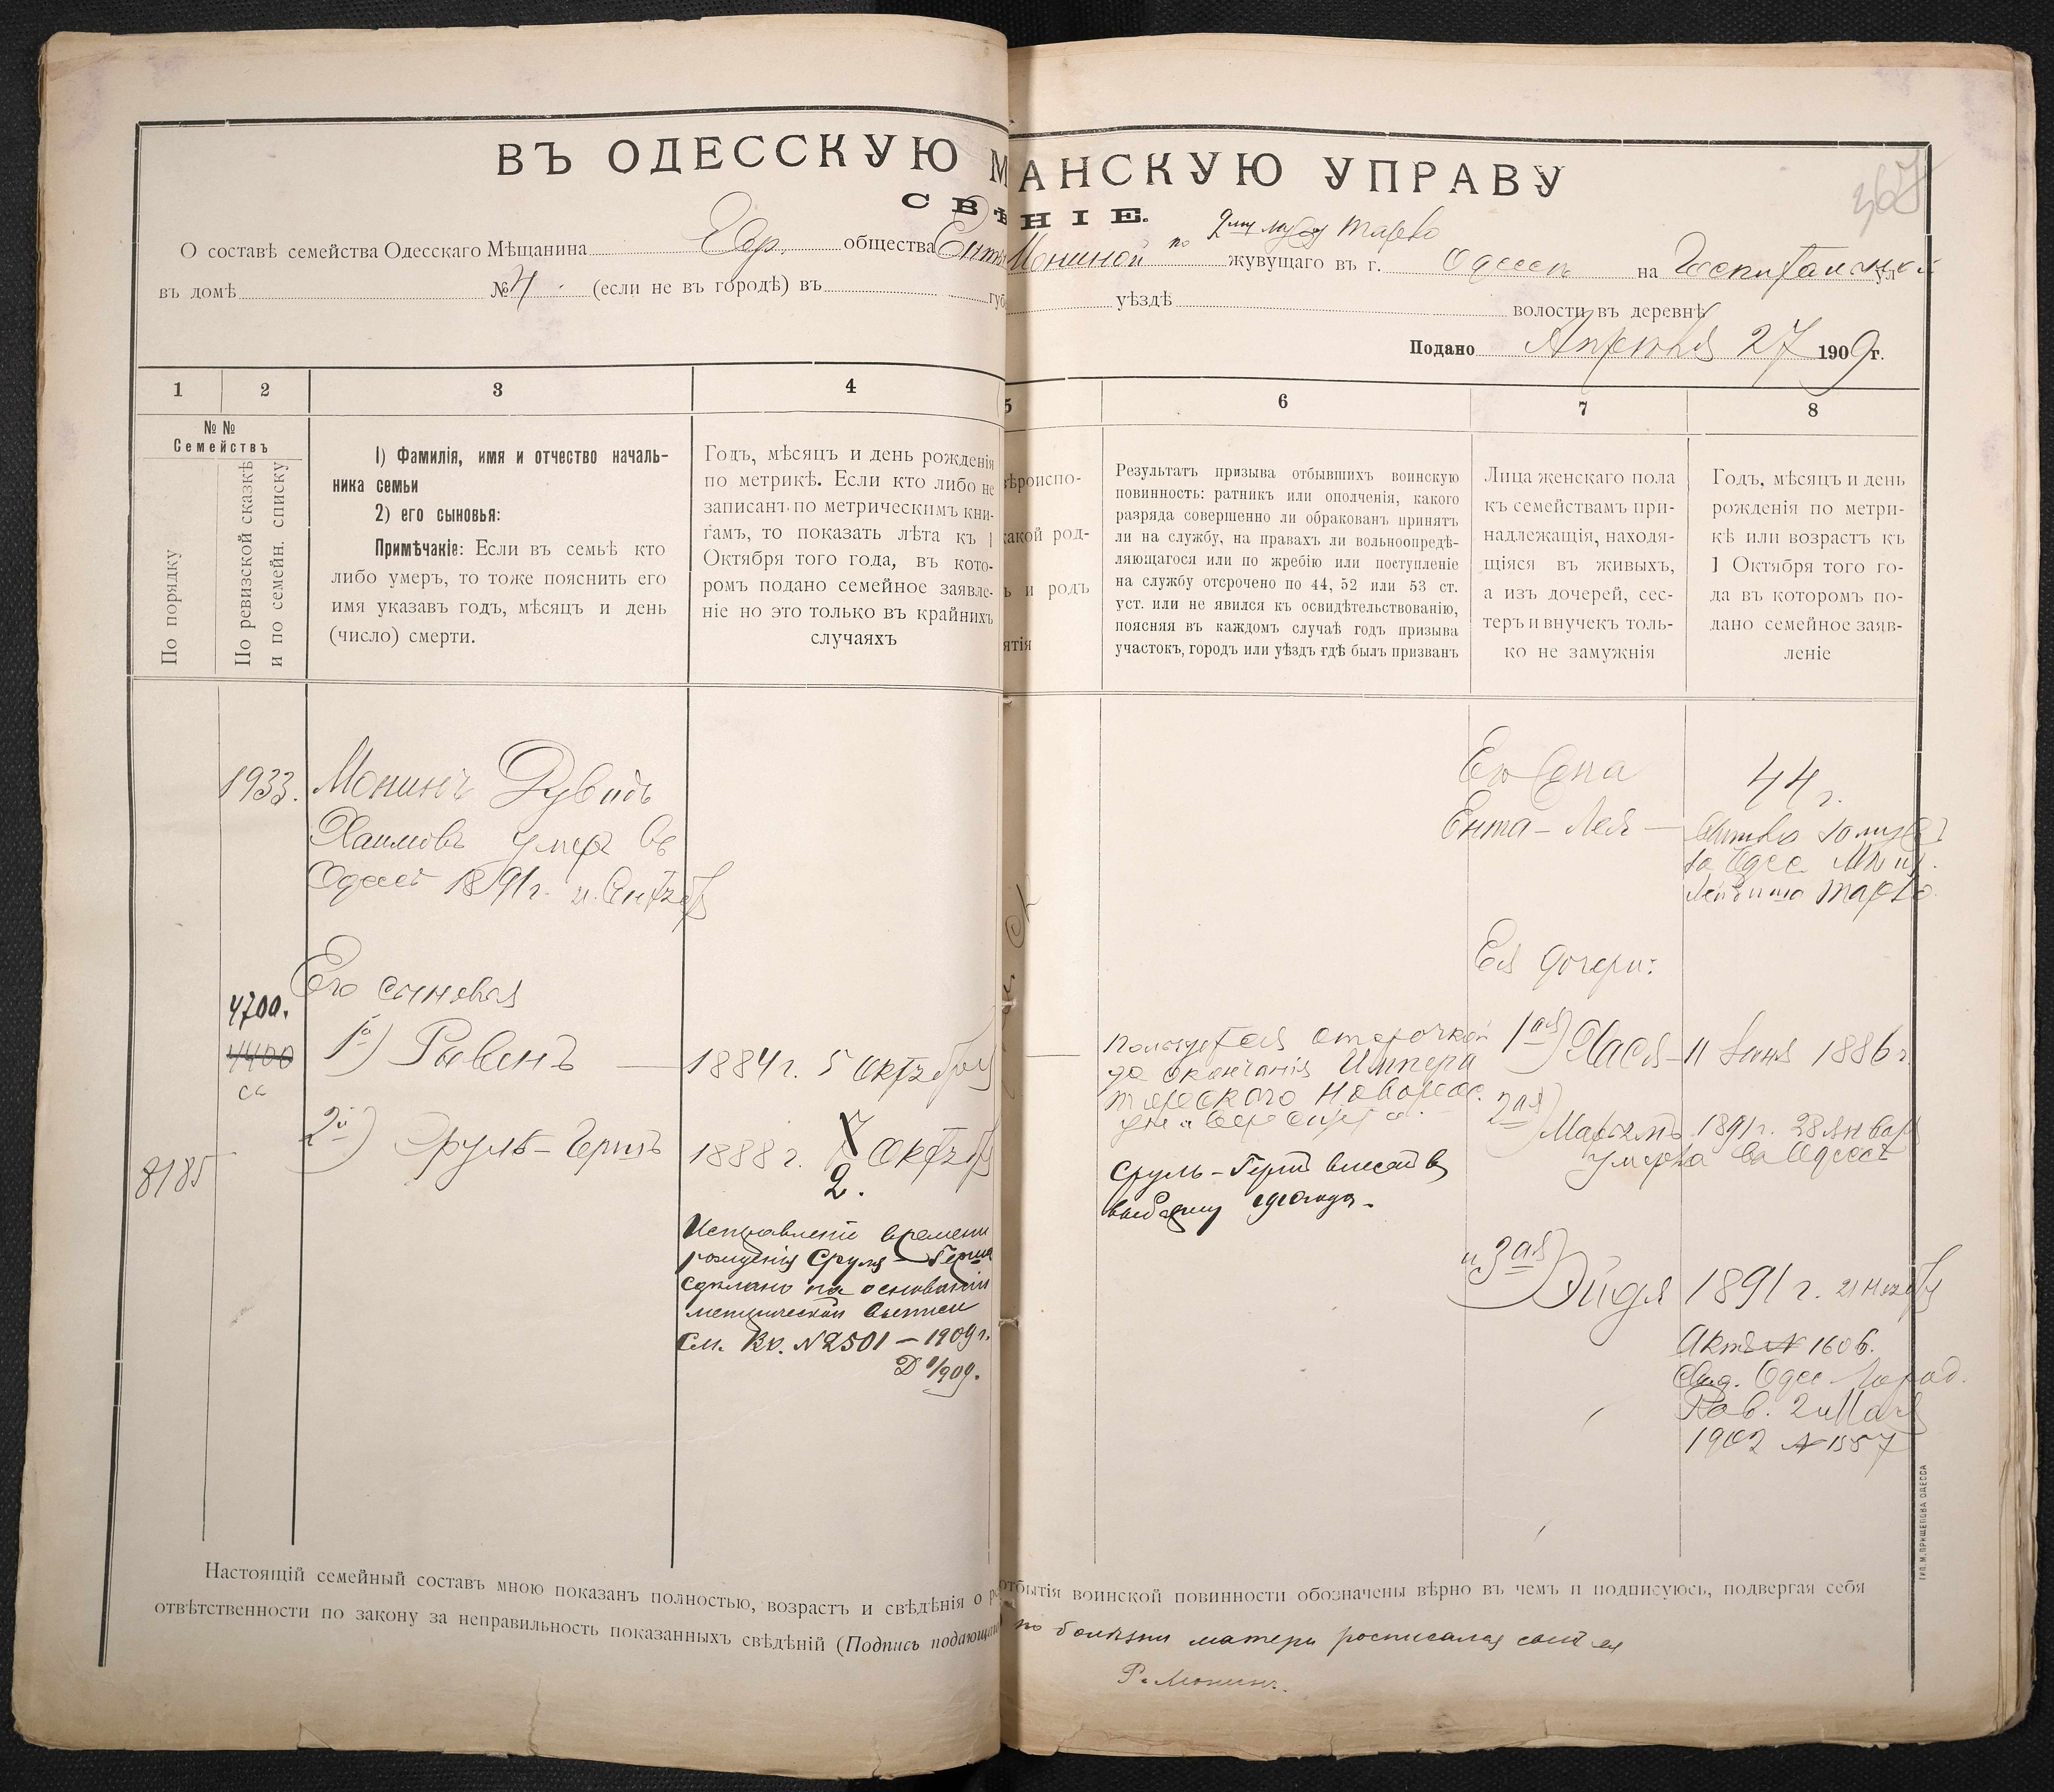 ВЪ ОДЕССКУЮ М
АНСКУЮ УПРАВУ
СВѢ
НІЕ.
О составѣ семейства Одесскаго Мѣщанина Евр. общества Енты
Мониной по 2му мужу Тарло живущаго въ г. Одессѣ на Госпитальной ул
въ домѣ № 4. (если не въ городѣ) въ губ
уѣздѣ волости въ деревнѣ
Подано Апрѣля 27 1909 г.
1 2 3 4
5 6 7 8
№№
Семействъ
По порядку
По ревизской сказкѣ
и по семейн. списку
1) Фамилія, имя и отчество началь-
ника семьи
2) его сыновья:
Примѣчакіе: Если въ семьѣ кто
либо умеръ, то тоже пояснить его
имя указавъ годъ, мѣсяцъ и день
(число) смерти.
Годъ, мѣсяцъ и день рожденія
по метрикѣ. Если кто либо не
записанъ по метрическимъ кни-
гамъ, то показать лѣта къ 1
Октября того года, въ кото-
ромъ подано семейное заявле-
ніе но это только въ крайнихъ
случаяхъ
ѣроиспо-
акой род-
ъ и родъ
ятія
Результатъ призыва отбывшихъ воинскую
повинность: ратникъ или ополченія, какого
разряда совершенно ли обракованъ принятъ
ли на службу, на правахъ ли вольноопредѣ-
ляющагося или по жребію или поступленіе
на службу отсрочено по 44, 52 или 53 ст.
уст. или не явился къ освидѣтельствованію,
поясняя въ каждомъ случаѣ годъ призыва
участокъ, городъ или уѣздъ гдѣ былъ призванъ
Лица женскаго пола
къ семействамъ при-
надлежащія, находя-
щіяся въ живыхъ,
а изъ дочерей, сес-
теръ и внучекъ толь-
ко не замужнія
Годъ, мѣсяцъ и день
рожденія по метри-
кѣ или возрастъ къ
1 Октября того го-
да въ которомъ по-
дано семейное заяв-
леніе
1933. Монинъ Дувидъ
Хаимовъ умеръ въ
Одессѣ 1891 г. Октября
Его жена
Ента-Лея
44 г.
за Одес. Мѣщ.
Тарло
Его сыновья
4700.
4400
са
1й) Рывенъ — 1884 г. 5 Октября
2й) Сруль-Гершъ 1888 г. 7 Октября
2.
8185
Исправленіе времени
рожденія Сруля-Герша
сдѣлано на основаніи
метрической выписи
См. Вх. № 2501 — 1909 г.
Пользуется отсрочкой
до окончанія Импера
торскаго Новорос.
университета.
Сруль-Гершъ внесенъ въ
Ея дочери:
1ая) Хася - 11 Іюня 1886 г.
2ая) 1891 г. 28 Января
умерла въ Одессѣ
и 3ая) Эйдля 1891 г. 21 Ноября
Актъ № 1606.
Свид. Одес Город.
Рав. 2 Мая
1902 № 1557
Настоящій семейный составъ мною показанъ полностью, возрастъ и свѣдѣнія о р
отбытія воинской повинности обозначены вѣрно въ чемъ и подписуюсь, подвергая себя
отвѣтственности по закону за неправильность показанныхъ свѣдѣній (Подпись подающаго
по болѣзни матери росписался сынъ ея
Р. Монинъ.
ТИП. М. ПРИЩЕПОВА ОДЕССА